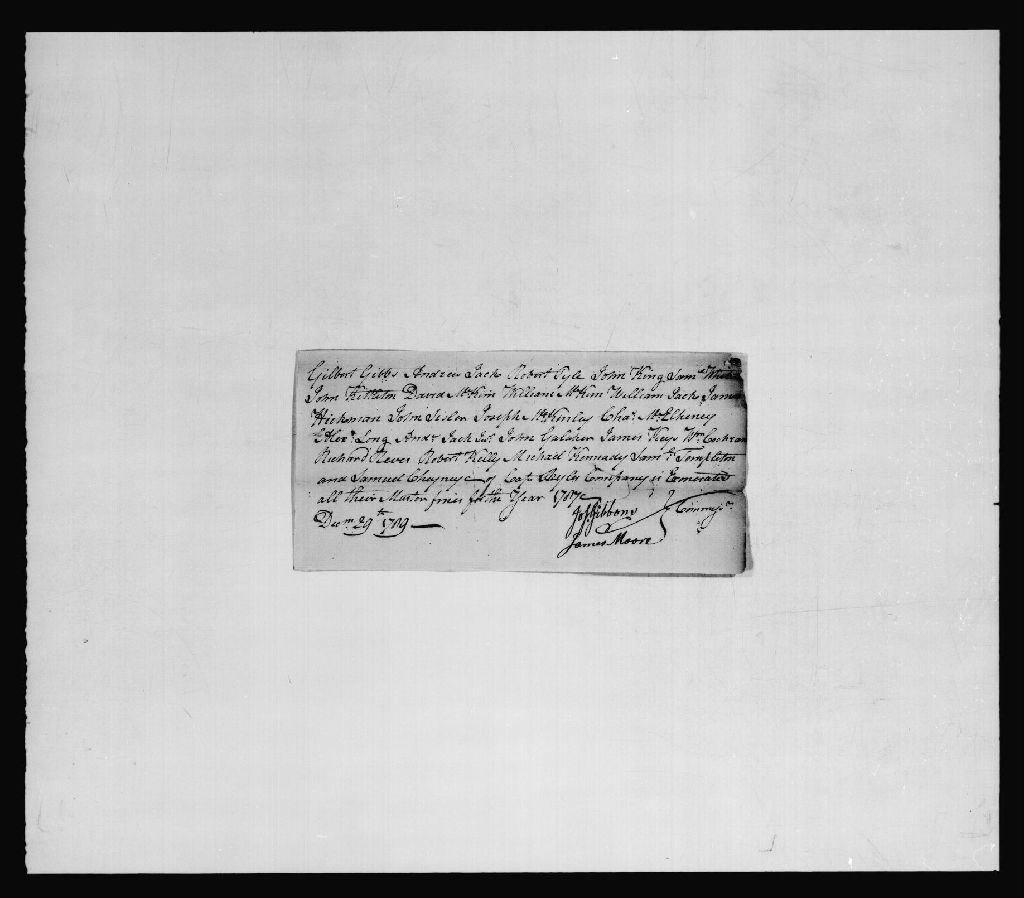 Gilbert Gibbs Andrew Jack Robert Pyle John King Saml
John David McKim William McKim William Jack James
Hickman John Sisler Joseph McKinley Chas. McElheney
Alexr. Long Andw. Jack Jos. John Galaher James Keys Wm. Cochran
Richard Rever Robert Kelly Michael Kennady Saml. Templeton
and Samuel Cheyney of Capt. Company is Exonerated
all their Muster fines for the Year 1787
Decm. 29th 1789 Jos Gibbons Commisrs.
James Moore